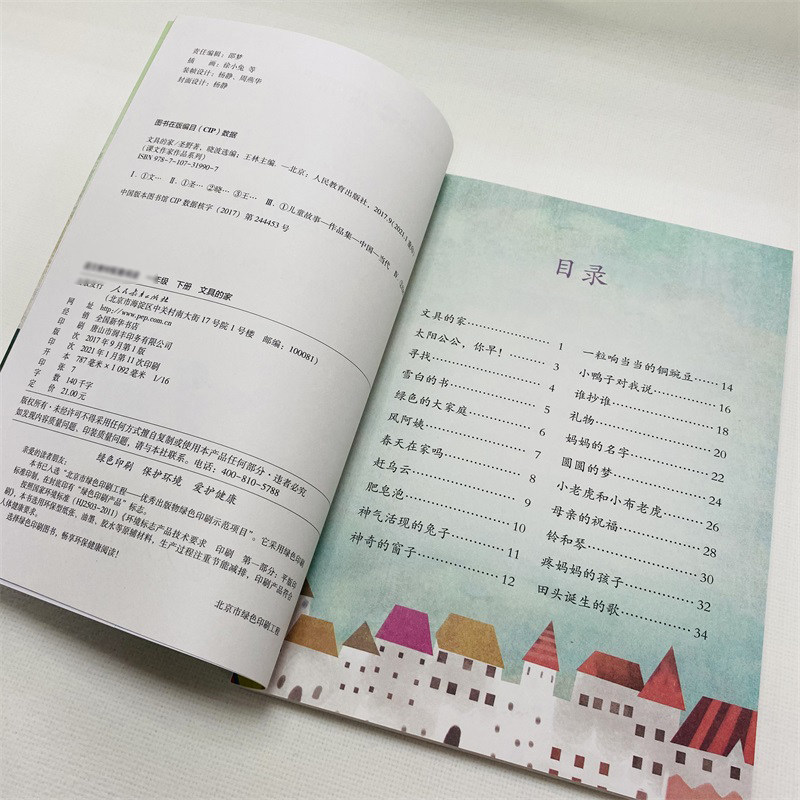 责任编辑：邵梦
插　　画：徐小兔 等
装帧设计：杨静、周燕华
封面设计：杨静
图书在版编目（CIP）数据
文具的家/圣野著，晓波选编；王林主编. —北京：人民教育出版社，2017.9(2021.1
（课文作家作品系列）
ISBN 978-7-107-31990-7
Ⅰ. ①文… Ⅱ. ①圣… ②晓… ③王… Ⅲ. ①儿童故事—作品集—中国—当代 Ⅳ.
中国版本图书馆CIP数据核字（2017）第244453号
年级 下册 文具的家
出版发行 人民教育出版社
（北京市海淀区中关村南大街17号院1号楼 邮编：100081）
网　　址 http://www.pep.com.cn
经　　销 全国新华书店
印　　刷 唐山市润丰印务有限公司
版　　次 2017年9月第1版
印　　次 2021年1月第11次印刷
开　　本 787毫米×1 092毫米 1/16
印　　张 7
字　　数 140千字
定　　价 21.00元
版权所有·未经许可不得采用任何方式擅自复制或使用本产品任何部分·违者必究
如发现内容质量问题、印装质量问题，请与本社联系。电话：400-810-5788
绿色印刷 保护环境 爱护健康
亲爱的读者朋友：
本书已入选“北京市绿色印刷工程——优秀出版物绿色印刷示范项目”。它采用绿色印刷
标准印制，在封底印有“绿色印刷产品”标志。
按照国家环境标准（HJ2503-2011）《环境标志产品技术要求 印刷 第一部分：平版印
刷》，本书选用环保型纸张、油墨、胶水等原辅材料，生产过程注重节能减排，印刷产品符合
人体健康要求。
选择绿色印刷图书，畅享环保健康阅读！
北京市绿色印刷工程
目录
文具的家……………… 1
太阳公公，你早！……… 3
寻找……………… 4
雪白的书……………… 5
绿色的大家庭……………… 6
风阿姨……………… 7
春天在家吗……………… 8
赶乌云……………… 9
肥皂泡……………… 10
神气活现的兔子……………… 11
神奇的窗子……………… 12
一粒响当当的铜豌豆…… 14
小鸭子对我说……………… 16
谁抄谁……………… 18
礼物……………… 20
妈妈的名字……………… 22
圆圆的梦……………… 24
小老虎和小布老虎……… 26
母亲的祝福……………… 28
铃和琴……………… 30
疼妈妈的孩子……………… 32
田头诞生的歌……………… 34